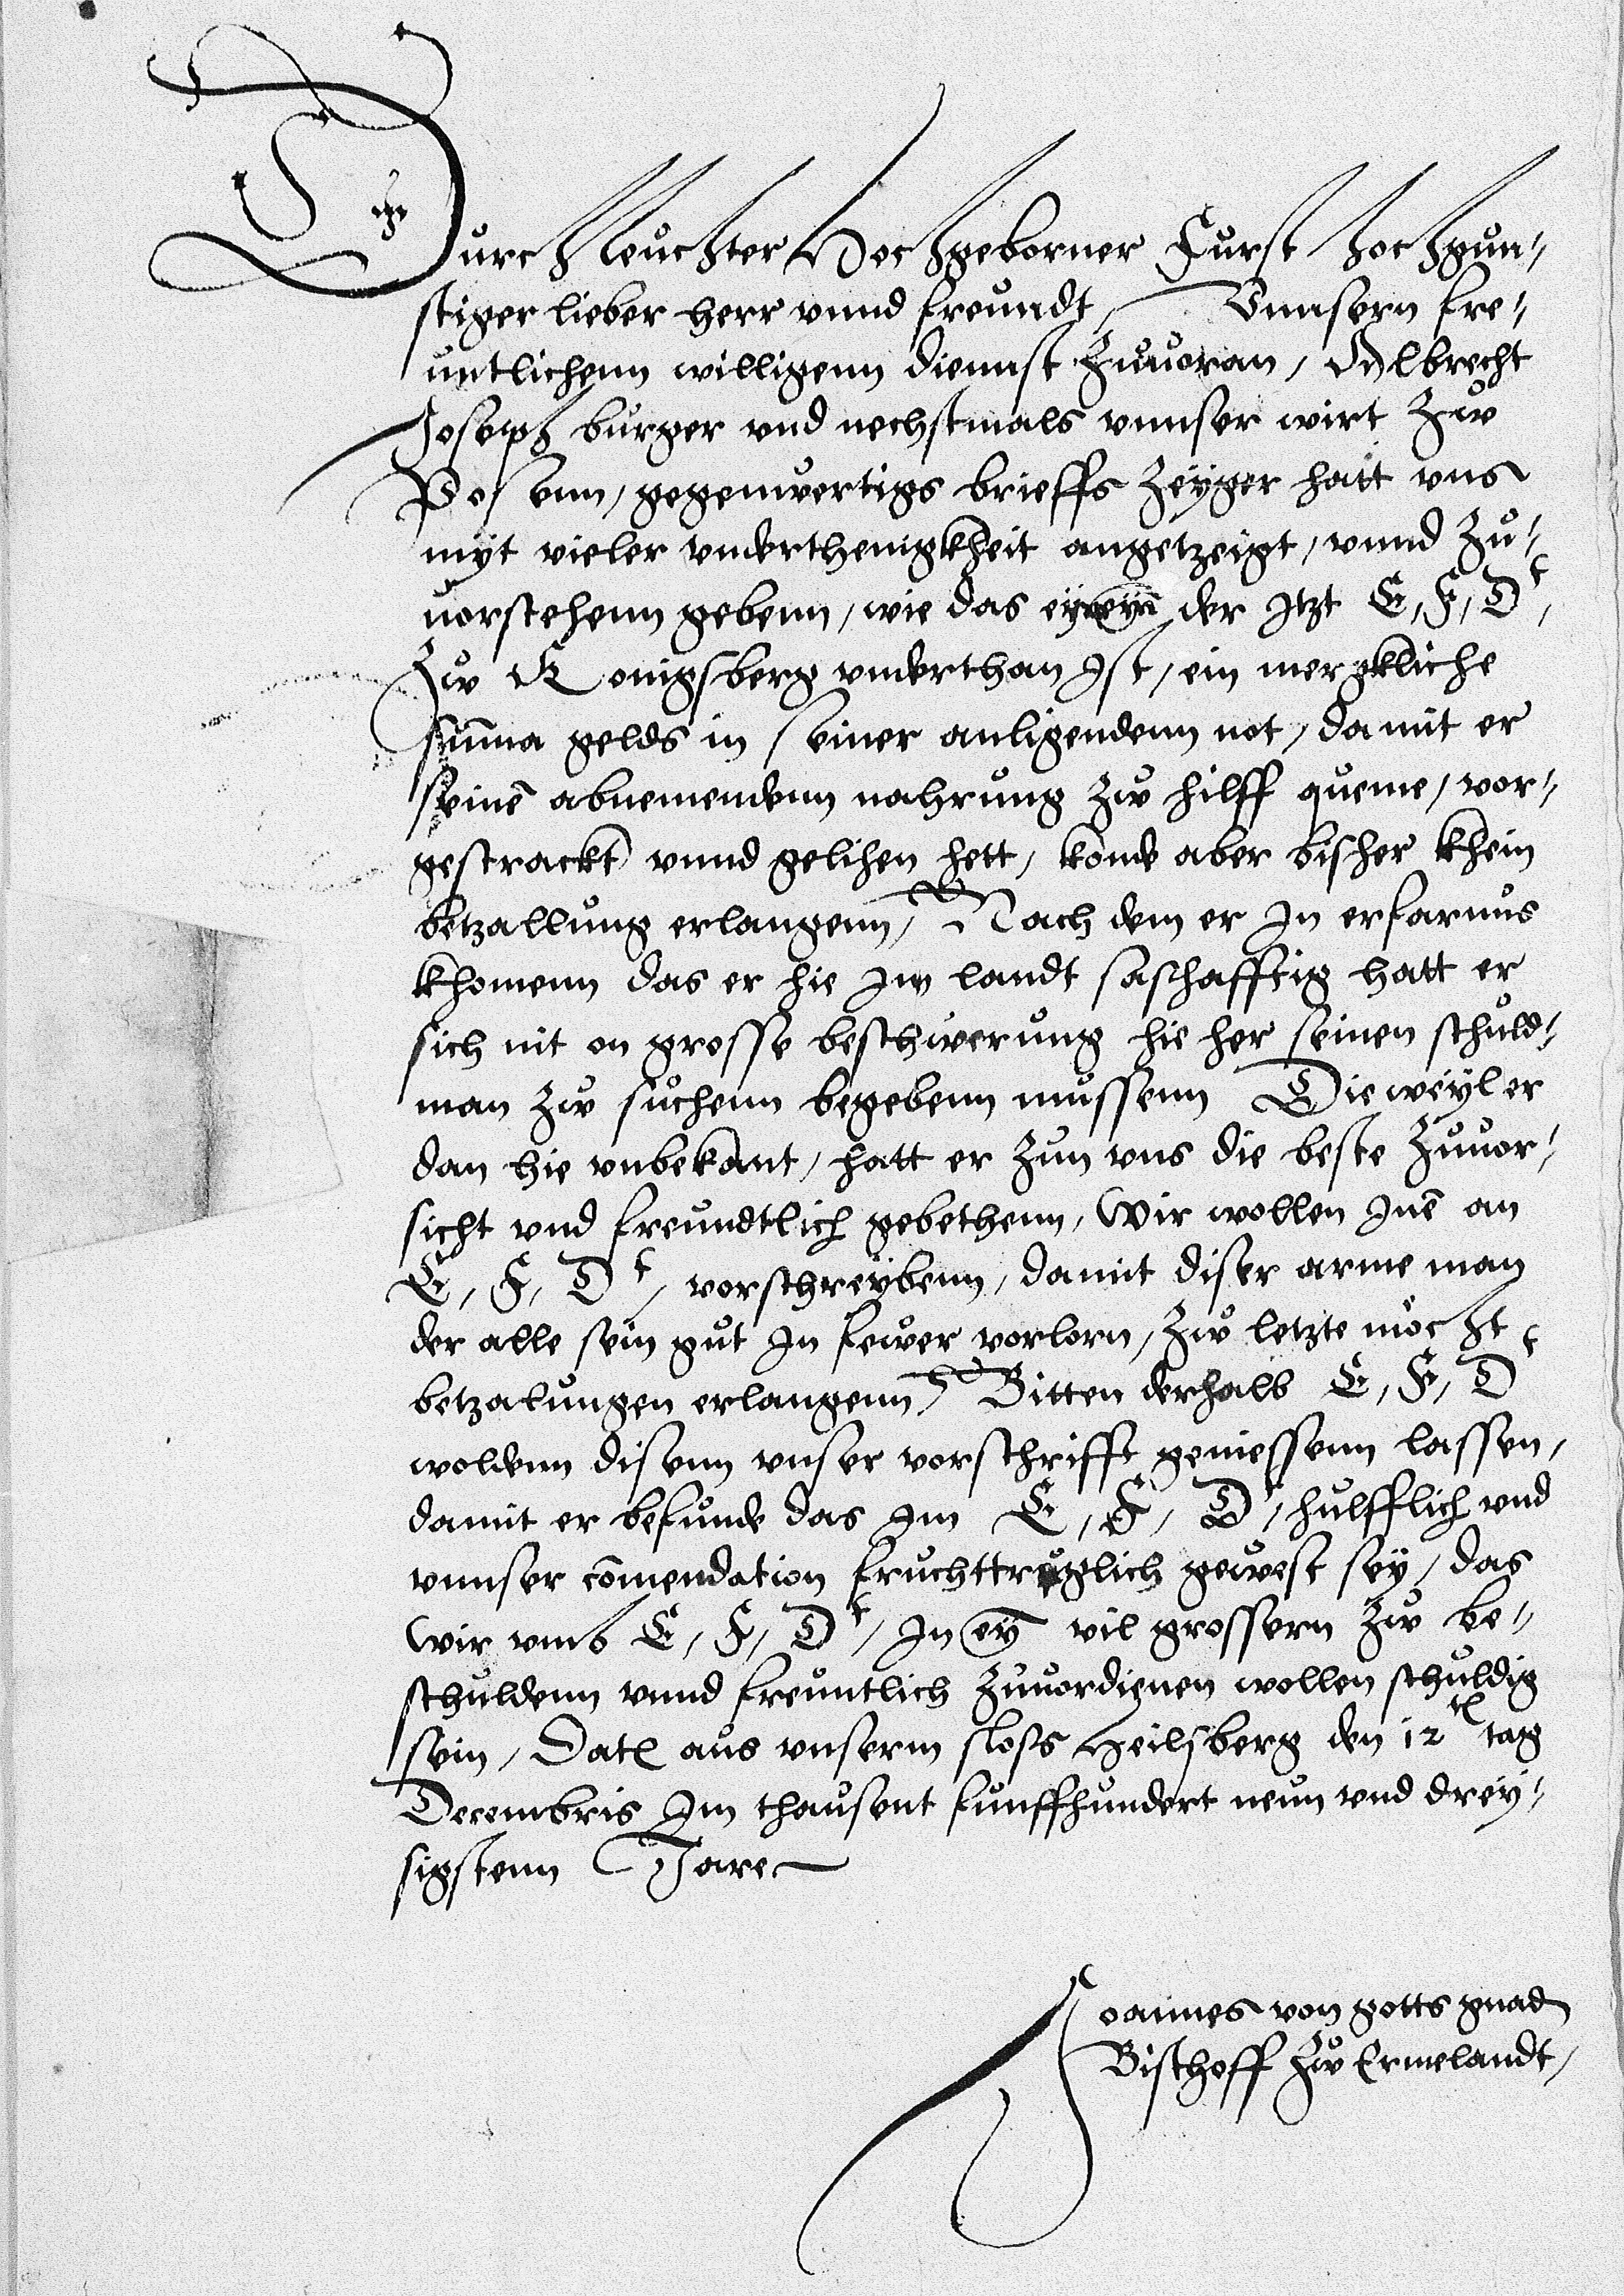 Durchleuchter Hochgeborner Furst hochgun-
stiger lieber herr vnnd freundt, Vnnsern fre-
untlichenn willigenn diennst zuuoran, Albrecht
Joseph burger vnd nechstmals vnnser wirt zw
Posenn, gegenwertigs brieffs zeyger hatt vns
myt vieler vnderthenigkheit angetzeigt, vnnd zu-
uorstehenn gebenn, wie das der itzt E, F, Dt,
zw Konigsberg vnderthan ist, ein mergkliche
sum̄a gelds in seiner anligendenn not, damit er
seinē abnemendenn nahrung zw hilff queme, vor-
gestrackt vnnd gelihen hett, konde aber bisher khein
betzallung erlangenn, Nach dem er in erfarnus
khomenn das er hie im landt saschafftig hatt er
sich nit on grosse beschwerung hie her seinen schuld-
man zw suchenn begebenn mussenn Die weyl er
dan hie vnbekant, hatt er zun vns die beste zuuor-
sicht vnd freundtlich gebethenn, Wir wollen inē an
E, F, Dt, vorschreybenn, damit diser arme man
der alle sein gut in fewer vorlorn, zw letzte mocht
betzalungen erlangenn, Bitten derhalb E, F, Dt
woldenn disenn vnser vorschrifft geniessenn lassen,
damit er befunde das im E, F, Dt, hulfflich vnd
vnnser com̄endation fruchttreglich gewest sey, das
wir vmb E, F, Dt, in eȳ vil grossern zw be-
schuldenn vnnd freuntlich zuuordienen wollen schuldig
sein, Dat aus vnserm sloss Heilsberg den 12 tag
Decembris Im thausent funffhundert neun vnd drey-
sigstenn Jare
Joannes von gotts gnad
Bischoff zw Ermelandt,